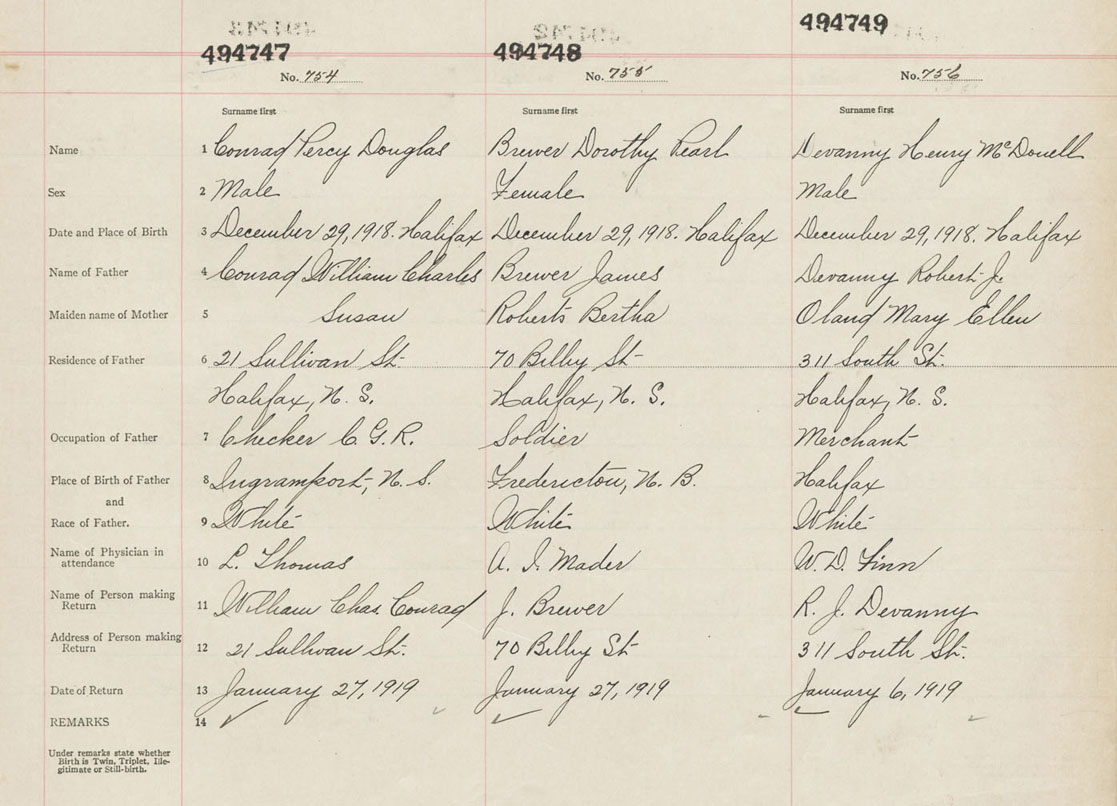 494747 494748 494749
No. 754 No. 755 No. 756
Surname first Surname first Surname first
Name 1 Conrad Percy Douglas Brewer Dorothy Pearl Devanny Henry McDonell
Sex 2 Male Female Male
Date and Place of Birth 3 December 29, 1918. Halifax December 29, 1918. Halifax December 29, 1918. Halifax
Name of Father 4 Conrad William Charles Brewer James Devanny Robert J.
Maiden name of Mother 5 Susan Roberts Bertha Oland Mary Ellen
Residence of Father 6 21 Sullivan St. 70 Bilby St 311 South St.
Halifax, N. S. Halifax, N. S. Halifax, N. S.
Occupation of Father 7 Checker C. G. R. Soldier Merchant
Place of Birth of Father 8 Ingramport, N. S. Fredericton, N. B. Halifax
and
Race of Father. 9 White White White
Name of Physician in attendance 10 L. Thomas A. I. Mader W. D. Finn
Name of Person making Return 11 William Chas. Conrad J. Brewer R. J. Devanny
Address of Person making Return 12 21 Sullivan St. 70 Bilby St 311 South St.
Date of Return 13 January 27, 1919 January 27, 1919 January 6, 1919
REMARKS 14
Under remarks state whether
Birth is Twin, Triplet, Ille-
gitimate or Still-birth.